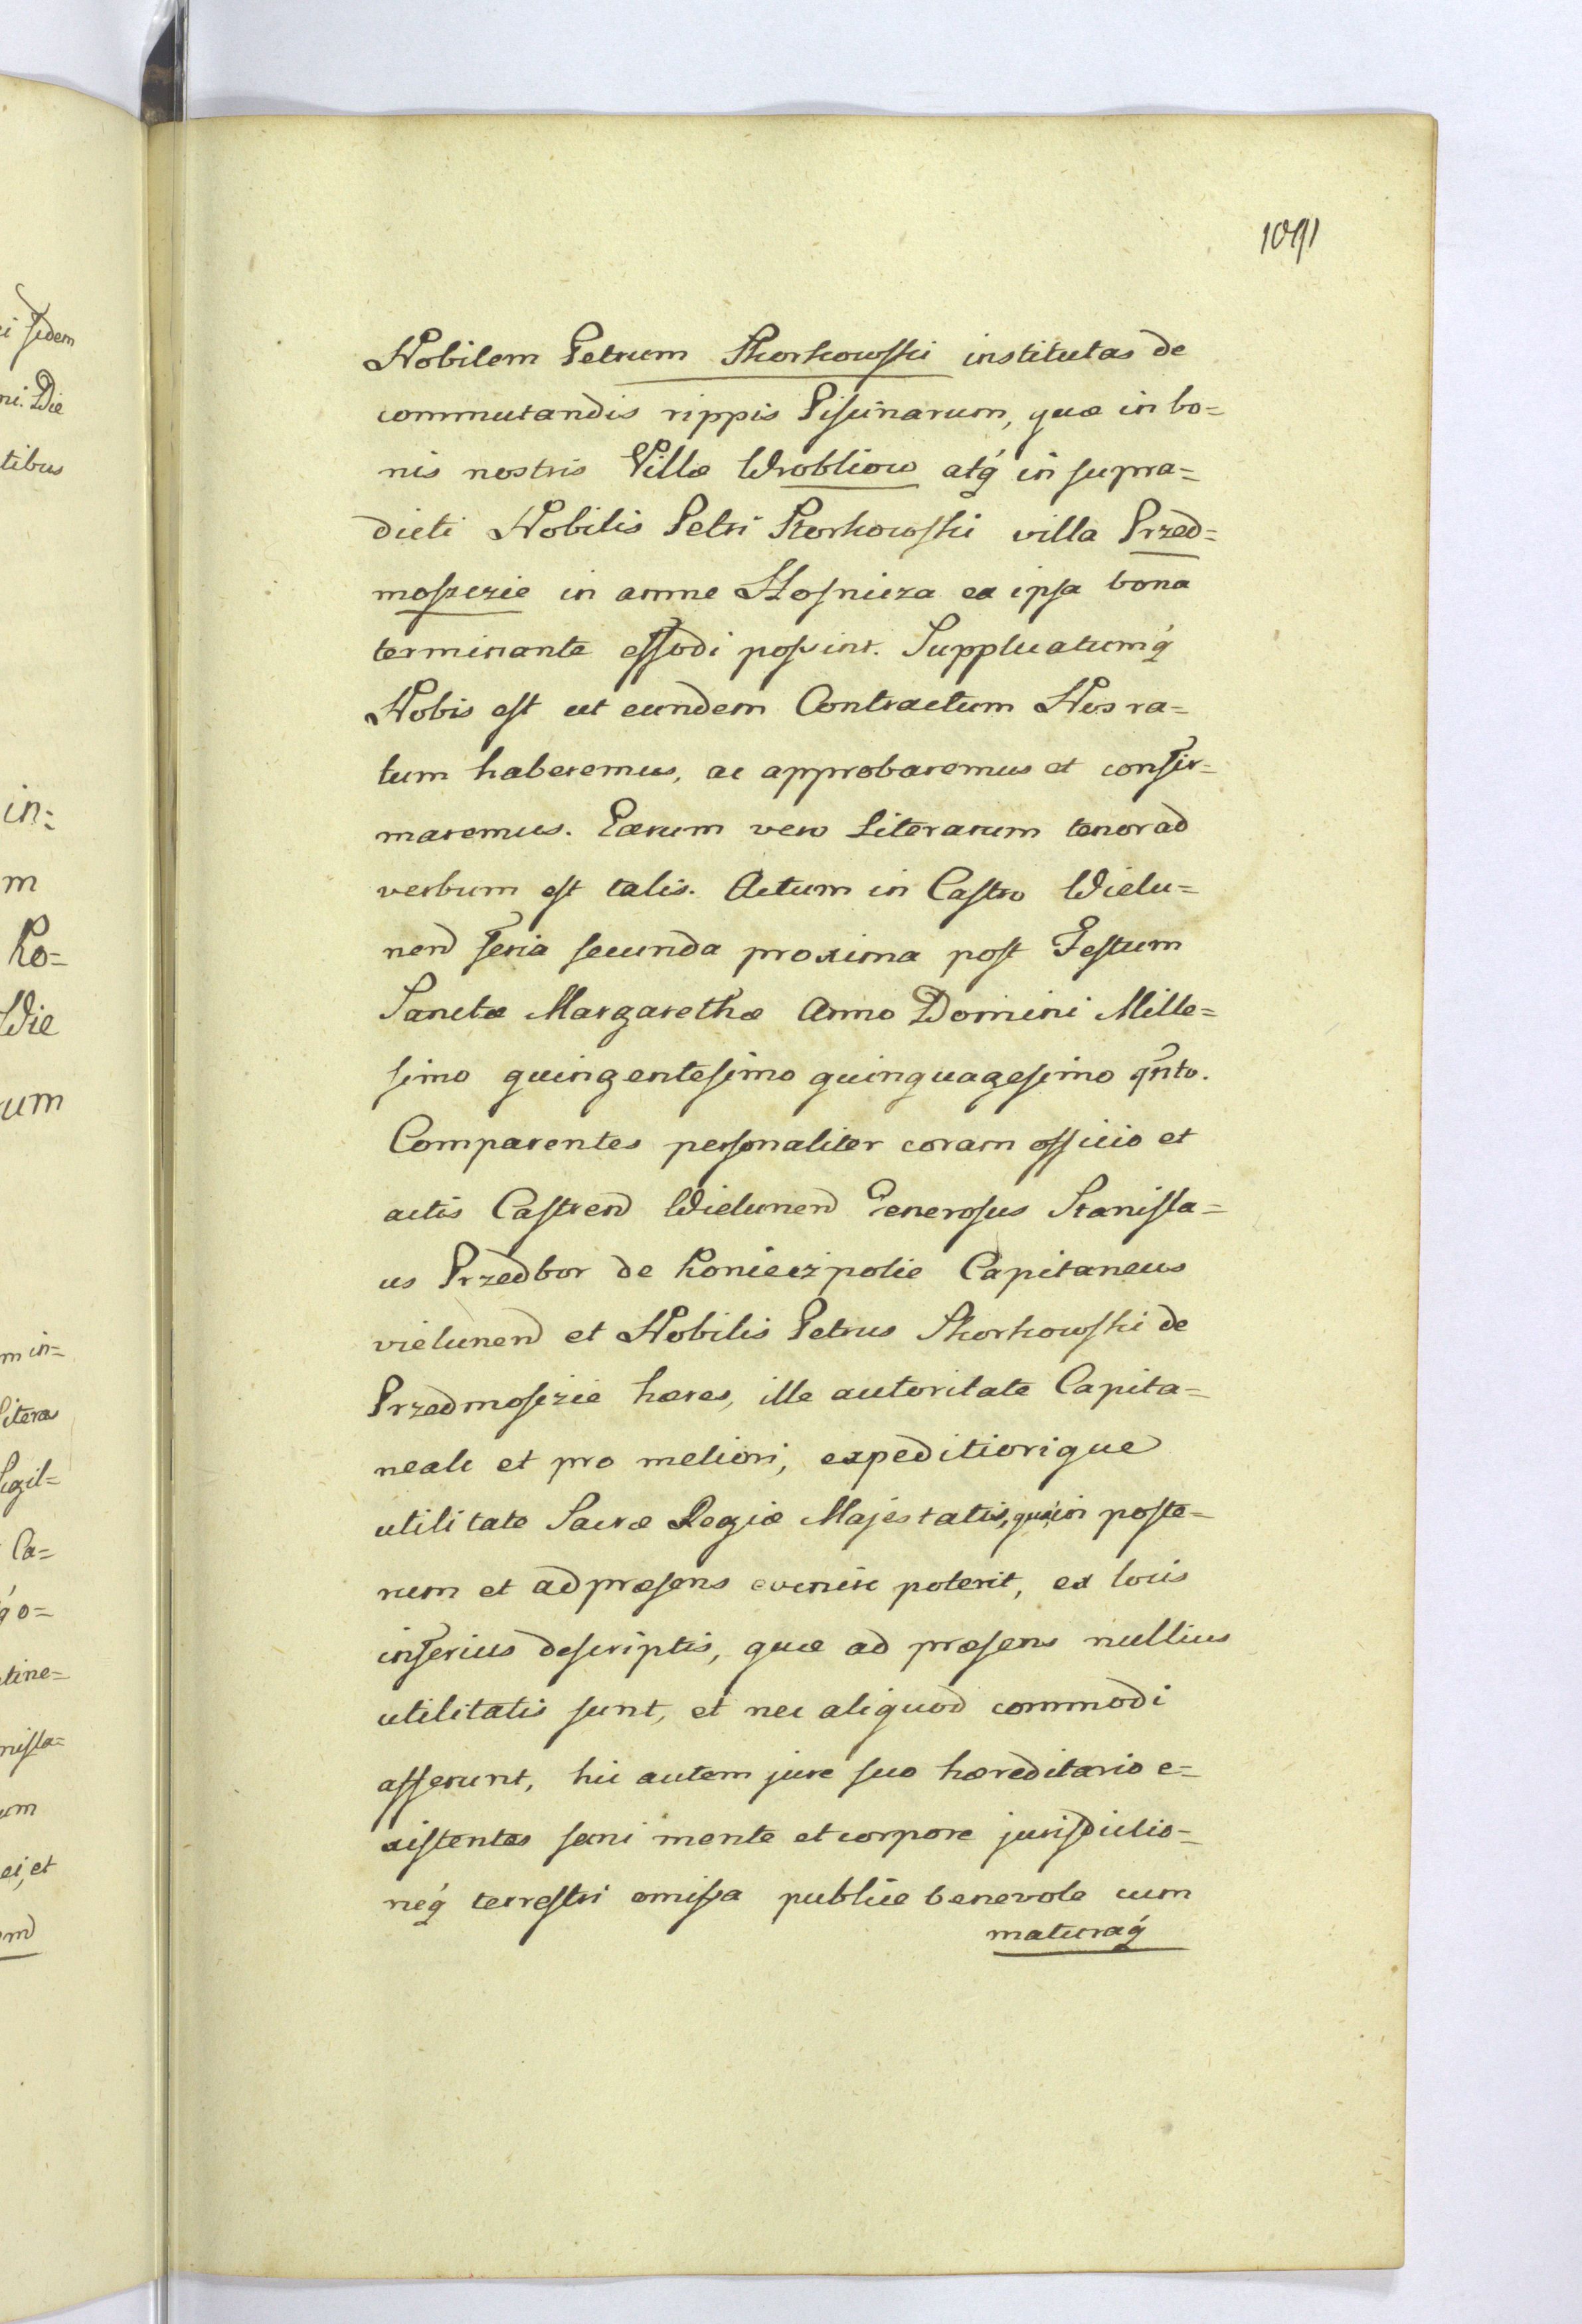 1091
Nobilem Petrum Skorkowski institutas de
commutandis rippis Piscinarum, quæ in bo=
nis nostris Villæ Wrobliow atq́ in supra=
dicti Nobilis Petri Skorkowski villa Przed=
mosczie in amne Stosnicza ex ipsa bona
terminante effodi possint. Supplicatumq́
Nobis est ut eundem Contractum Nos ra=
tum haberemus, ac approbaremus et confir=
maremus. Earum vero Literarum tenor ad
verbum est talis. Actum in Castro Wielu=
nen̄ feria secunda proxima post Festum
Sanctæ Margarethæ Anno Domini Mille=
simo quingentesimo quinquagesimo qn̄to.
Comparentes personaliter coram officio et
actis Castren̄ Wielunen̄ Generosus Stanisla=
us Przedbor de Konieczpolie Capitaneus
vielunen̄ et Nobilis Petrus Skorkowski de
Przedmosczie hæres, ille autoritate Capita=
neali et pro meliori, expeditiorique
utilitate Sacræ Regiæ Majestatis, quæ in poste=
rum et ad præsens evenire poterit, ex locis
inferius descriptis, quæ ad præsens nullius
utilitatis sunt, et nec aliquod commodi
afferunt, hic autem jure suo hæreditario e=
xistentes sani mente et corpore jurisdictio=
neq́ terrestri omissa publice benevole cum
maturaq́
i fidem
ni. Die
tibus
in=
m
Ko=
Wie
rum
m in=
Litera
Sigil=
Ca=
q́ o=
tine=
nisla=
um
ei, et